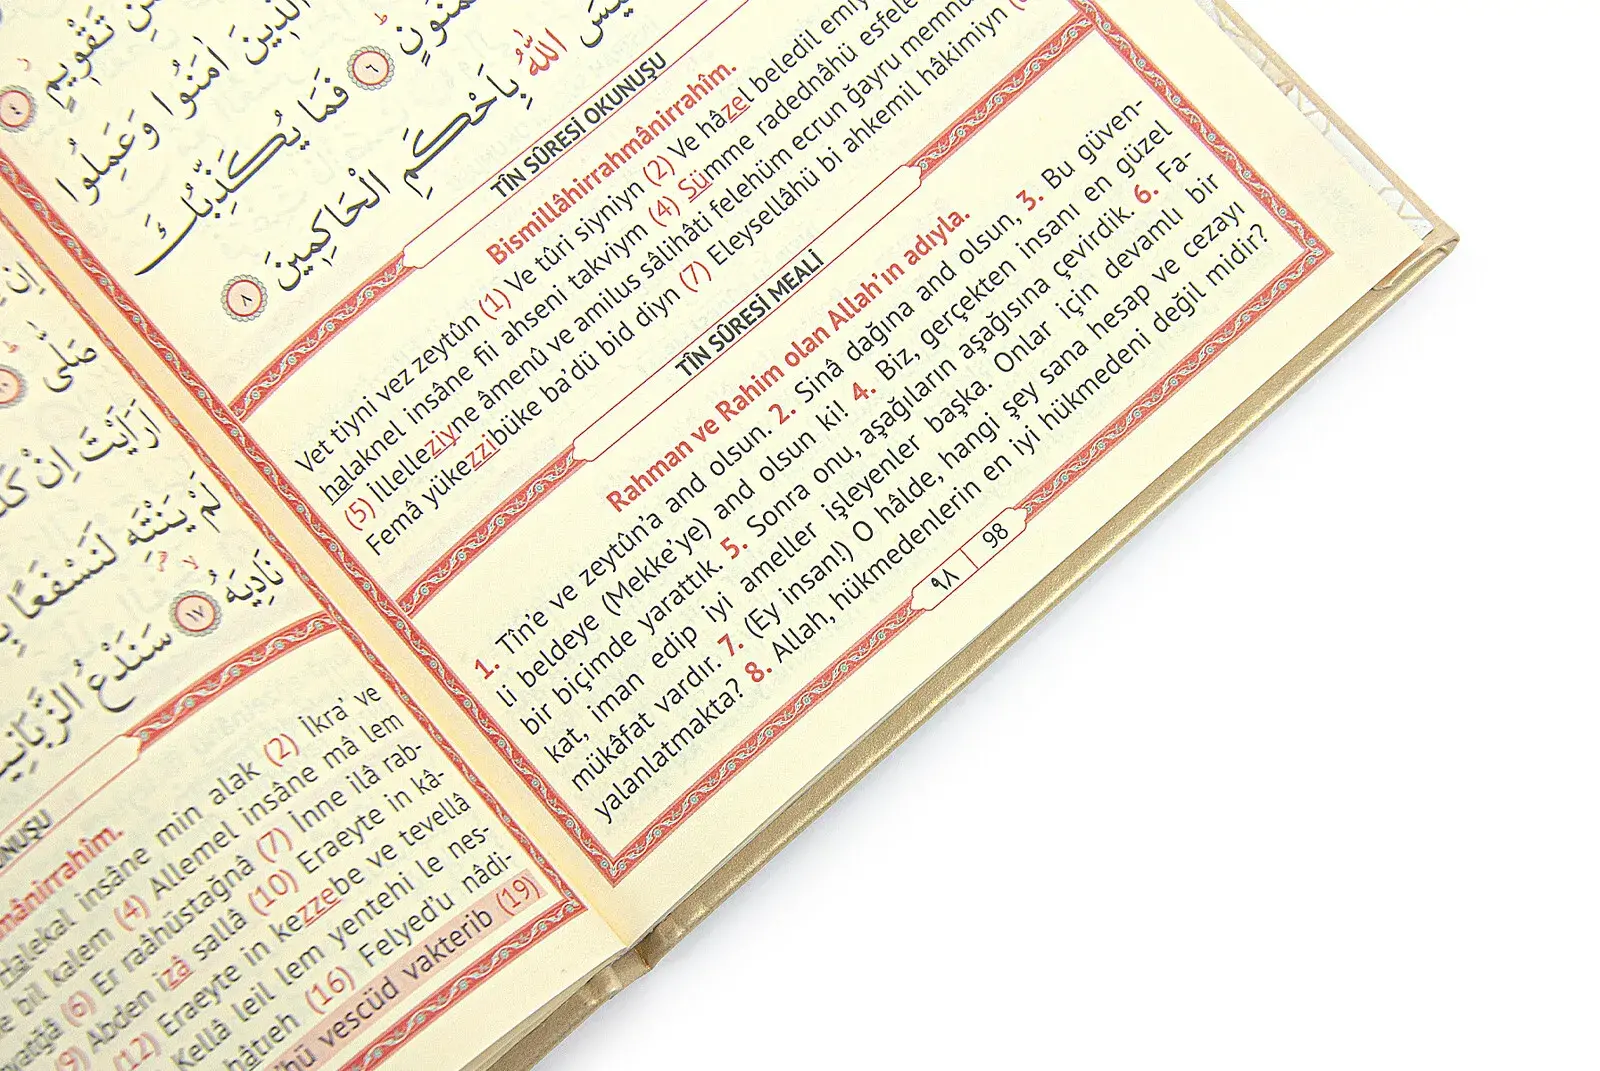 نِ تَقْوِيمٍ ٤
الَّذِينَ اٰمَنُوا وَعَمِلُوا
مَمْنُونٍ ٦ فَمَا يُكَذِّبُكَ
اللّٰهُ بِاَحْكَمِ الْحَاكِمِينَ ٨
TÎN SÛRESİ OKUNUŞU
Bismillâhirrahmânirrahîm.
Vet tiyni vez zeytûn (1) Ve tûri siyniyn (2) Ve hâzel beledil emiy
halaknel insâne fii ahseni takviym (4) Sümme radednâhü esfele
(5) İllelleziyne âmenû ve amilus sâlihâti felehüm ecrun ğayru memnu
Femâ yükezzibüke ba'dü bid diyn (7) Eleysellâhü bi ahkemil hâkimiyn
TÎN SÛRESİ MEALİ
Rahman ve Rahim olan Allah'ın adıyla.
1. Tîn'e ve zeytûn'a and olsun. 2. Sinâ dağına and olsun, 3. Bu güven-
li beldeye (Mekke'ye) and olsun ki! 4. Biz, gerçekten insanı en güzel
bir biçimde yarattık. 5. Sonra onu, aşağıların aşağısına çevirdik. 6. Fa-
kat, iman edip iyi ameller işleyenler başka. Onlar için devamlı bir
mükâfat vardır. 7. (Ey insan!) O hâlde, hangi şey sana hesap ve cezayı
yalanlatmakta? 8. Allah, hükmedenlerin en iyi hükmedeni değil midir?
٩٨ 98
صَلّٰى
اَرَاَيْتَ اِنْ
لَمْ يَنْتَهِ لَنَسْفَعًا
نَادِيَهُ ١٧ سَنَدْعُ الزَّبَانِيَةَ
NUŞU
mânirrahîm.
Halekal insâne min alak (2) İkra' ve
bil kalem (4) Allemel insâne mâ lem
(6) Er raâhüstağnâ (7) İnne ilâ rab-
(9) Abden izâ sallâ (10) Eraeyte in kâ-
(12) Eraeyte in kezzebe ve tevellâ
Kellâ leil lem yentehi le nes-
hâtıeh (16) Felyed'u nâdi-
hü vescüd vakterib (19)